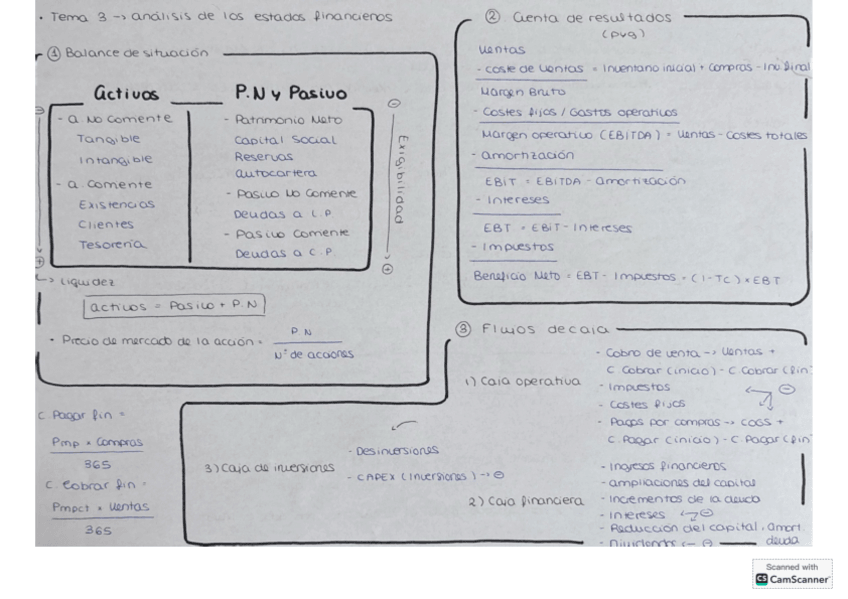 • Tema 3 -> análisis de los estados financieros
① Balance de situación
Activos
P.N y Pasivo
- a. No corriente
Tangible
Intangible
- a. Corriente
Existencias
Clientes
Tesorería
- Patrimonio Neto
Capital Social
Reservas
autocartera
- Pasivo No Corriente
Deudas a L.P.
- Pasivo Corriente
Deudas a C.P.
Exigibilidad
-> Liquidez
activos = Pasivo + P.N
• Precio de mercado de la acción = P.N / Nº de acciones
C. Pagar fin =
Pmp × Compras
365
C. Cobrar fin =
Pmpct × Ventas
365
② Cuenta de resultados
(PyG)
Ventas
- Coste de Ventas = Inventario inicial + Compras - Inv. final
Margen Bruto
- Costes fijos / Gastos operativos
Margen operativo (EBITDA) = Ventas - Costes totales
- amortización
EBIT = EBITDA - Amortización
- Intereses
EBT = EBIT - Intereses
- Impuestos
Beneficio Neto = EBT - Impuestos = (1-TC) × EBT
③ Flujos de caja
1) Caja operativa
- Cobro de venta -> Ventas +
C. Cobrar (inicio) - C. Cobrar (fin)
- Impuestos
- Costes fijos
- Pagos por compras -> COGS +
C. Pagar (inicio) - C. Pagar (fin)
2) Caja financiera
- Ingresos financieros
- ampliaciones del capital
- Incrementos de la deuda
- Intereses
- Reducción del capital, amort.
deuda
- Dividendos
3) Caja de inversiones
- Desinversiones
- CAPEX (Inversiones) -> ⊖
Scanned with
CS CamScanner